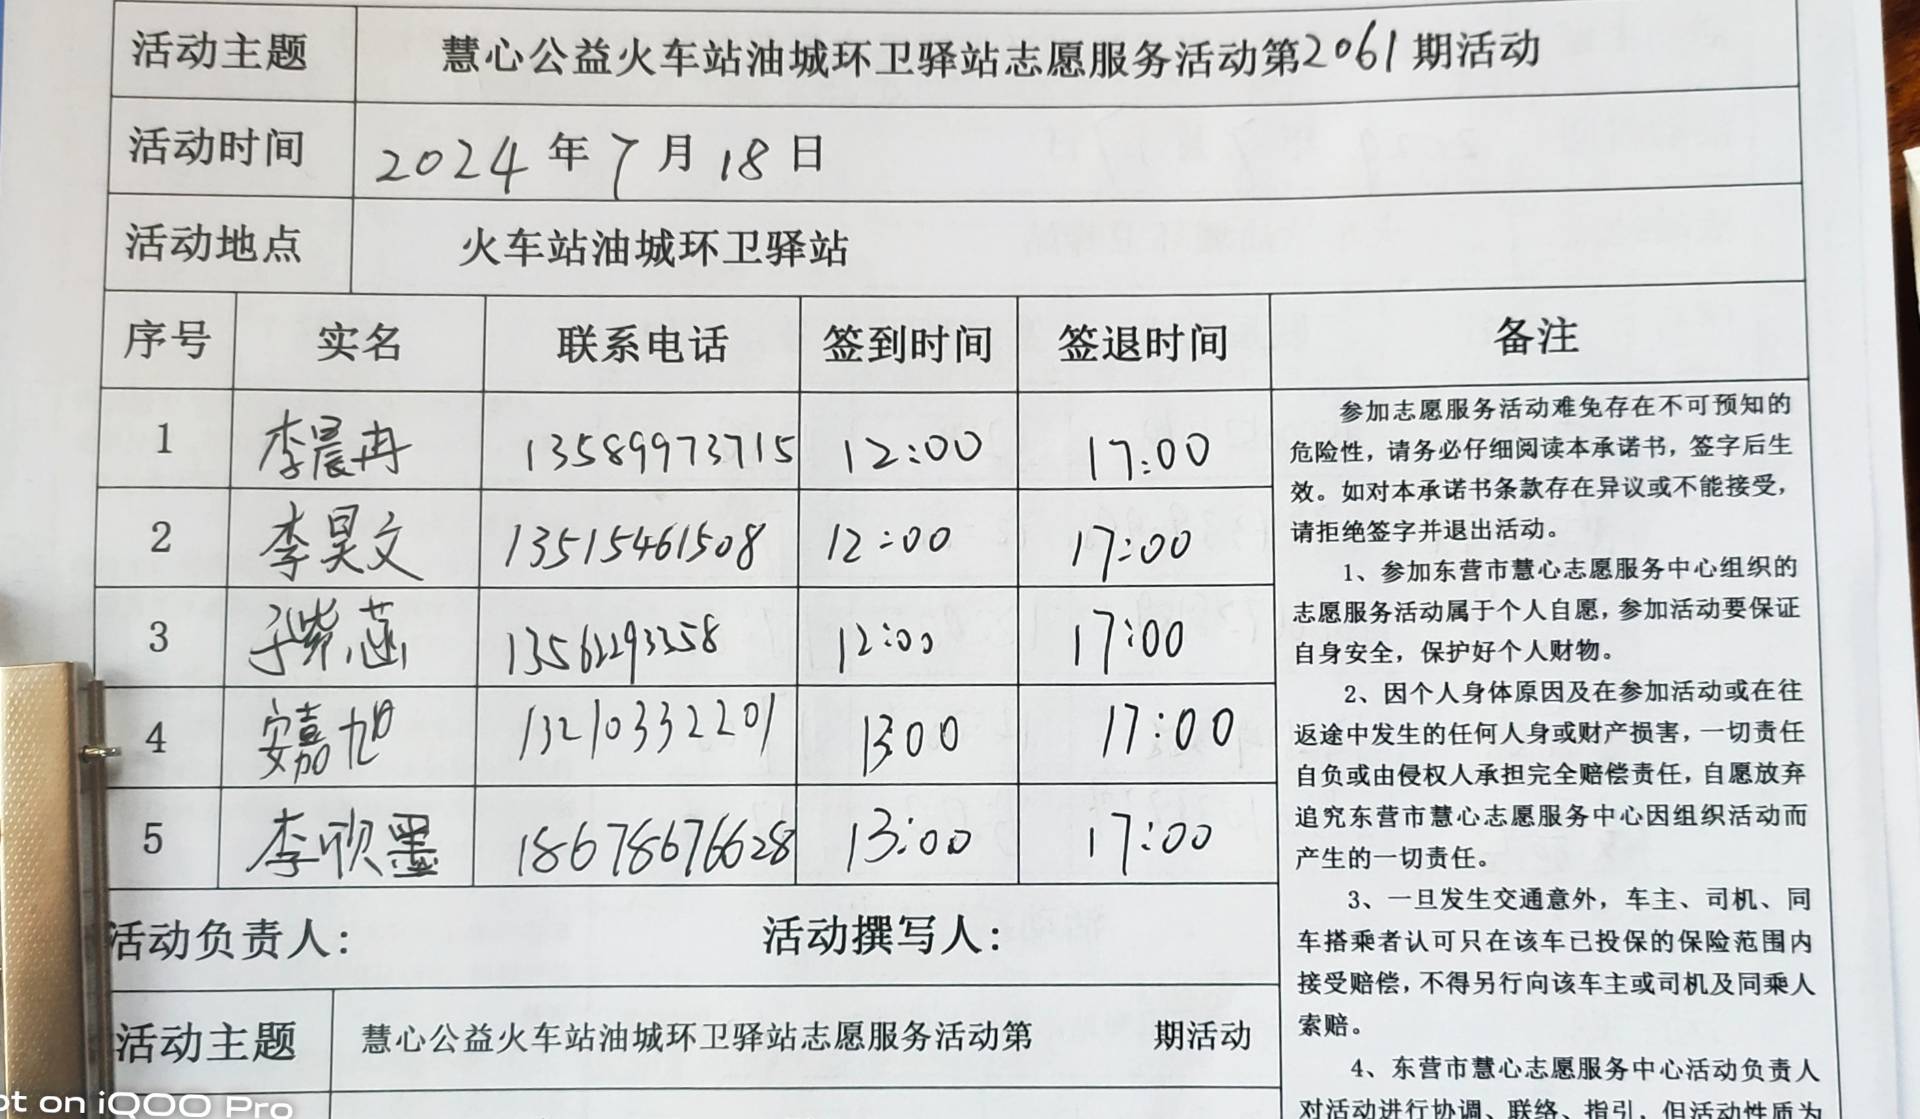 活动主题 慧心公益火车站油城环卫驿站志愿服务活动第2061期活动
活动时间 2024年7月18日
活动地点 火车站油城环卫驿站
序号 实名 联系电话 签到时间 签退时间 备注
1 李晨冉 13589973715 12:00 17:00
2 李昊文 13515461508 12:00 17:00
3 于紫涵 13562293358 12:00 17:00
4 安嘉旭 13210332201 13:00 17:00
5 李欣墨 18678676628 13:00 17:00
参加志愿服务活动难免存在不可预知的
危险性，请务必仔细阅读本承诺书，签字后生
效。如对本承诺书条款存在异议或不能接受，
请拒绝签字并退出活动。
1、参加东营市慧心志愿服务中心组织的
志愿服务活动属于个人自愿，参加活动要保证
自身安全，保护好个人财物。
2、因个人身体原因及在参加活动或在往
返途中发生的任何人身或财产损害，一切责任
自负或由侵权人承担完全赔偿责任，自愿放弃
追究东营市慧心志愿服务中心因组织活动而
产生的一切责任。
3、一旦发生交通意外，车主、司机、同
车搭乘者认可只在该车已投保的保险范围内
接受赔偿，不得另行向该车主或司机及同乘人
索赔。
4、东营市慧心志愿服务中心活动负责人
对活动进行协调、联络、指引，但活动性质为
活动负责人： 活动撰写人：
活动主题 慧心公益火车站油城环卫驿站志愿服务活动第 期活动
ot on iQOO Pro